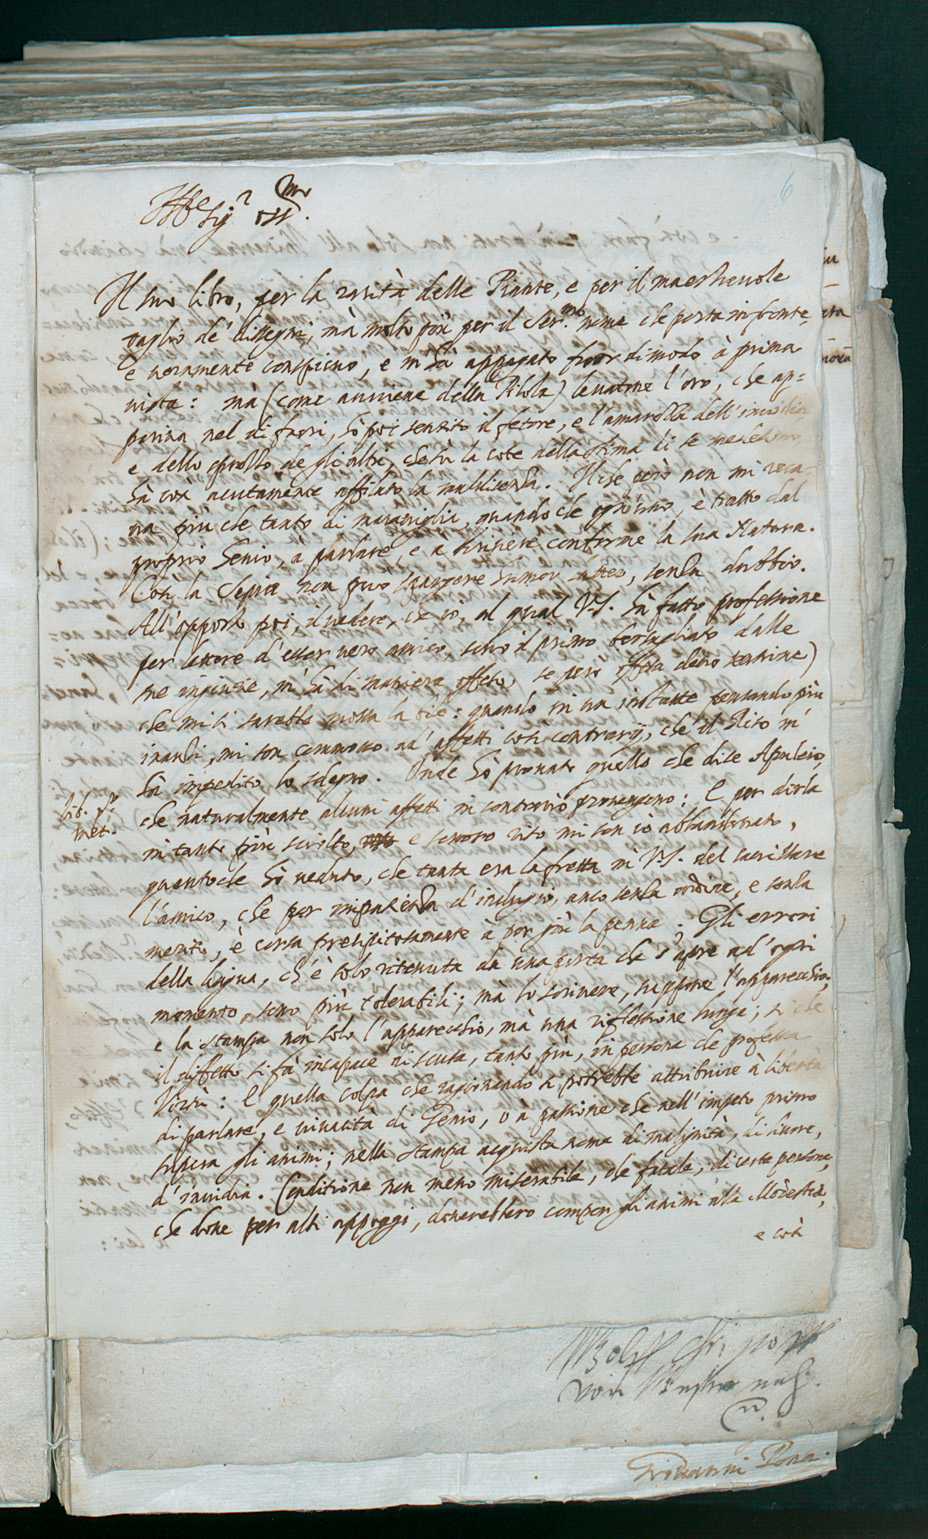 6
Il suo libro, per la rarità delle Piante, e per il maestreuole
taglio de' dissegni, mà molto più per il Ser.mo nome che porta in fronte,
è ueramente conspicuo, e m'hà appagato fuor di modo à prima
uista: mà (come auuiene della Pilola) leuatone l'oro, che ap=
parina nel di fuori, hò poi sentito il fetore, e l'amarolla dell'inuidia
e dello sprezzo de gli altri, che sù la cote della stima di se medesimo
hà così acutamente affilato la maldicenza. Il che però non mi reca=
ua più che tanto di marauiglia, quando che ogn'uno, è tratto dal
proprio Genio, à parlare e a scriuere conforme la sua Natura.
Così la Sepia non può spargere humor latteo, senza dubbio.
All'opposto poi, il uedere, che io, al qual V.S. hà fatto professione
per lettere d'esser uero amico, sono il primo bersagliato dalle
sue ingiurie, m'hà di maniera offeso, se però offesa deuo
che mi si sarebbe mossa la bile: quando in un instante pensando più
inanzi, mi son commosso ad' affetti così contrarij, che 'l Riso m'
hà impedito lo sdegno. Onde hò prouato quello che dice Apuleio,
lib. p.o
met.
che naturalmente alcuni affetti in contrario prouengono: E per dirla
in tanto più sciolto e sonoro riso mi son io abbandonato,
quanto che hò ueduto, che tanta era la fretta in V.S. del
l'amico, che per impazienza d'indugio, anco senza ordine, e senza
mento, è corsa precipitosamente à por giù la penna; Gli errori
della lingua, ch'è solo ritenuta da una porta che s'apre ad'ogni
momento, sono più tolerabili; mà lo scriuere, suppone l'apparecchio,
e la stampa non solo l'apparecchio, mà una riflessione lunga; si che
il diffetto si fà incapace di scusa, tanto più, in persona che professa
Virtù: E quella colpa che ragionando si potrebbe attribuire à libertà
di parlare, e uiuacità di Genio, o a passione che nell'impeto primo
supera gli animi; nella stampa acquista nome di malignità, di liuore,
d'inuidia. Conditione non meno miserabile, che facile, di certe persone,
che doue per altri appoggi, douerebbero compor gli animi alla Modestia,
e così
Giouanni Pona.